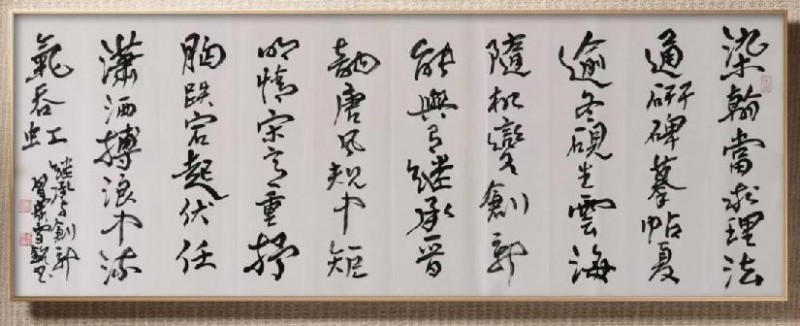 染翰當求理法
通研碑摹帖夏
逾冬硯生雲海
隨机變創新
能與繼承晉
韵唐風規中矩
明情宋意重抒
胸跌宕起伏任
瀟洒搏浪中流
氣吞虹
繼承与創新